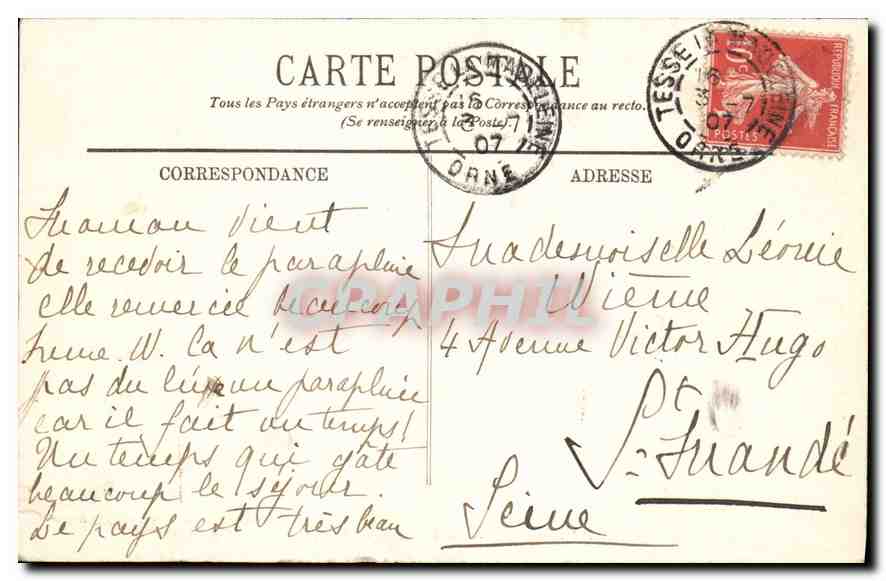 CARTE POSTALE
Tous les Pays étrangers n'acceptent pas la Correspondance au recto.
(Se renseigner à la Poste).
CORRESPONDANCE
ADRESSE
TESSE LA MADELEINE
16
3 -7
07
ORNE
TESSE LA MADELEINE
16
3 -7
07
ORNE
10c
REPUBLIQUE FRANÇAISE
POSTES
Maman vient
de recevoir le parapluie
elle remercie beaucoup
Mme W. Ca n'est
pas du un parapluie
car il fait un temps!
Un temps qui gâte
beaucoup le séjour.
Le pays est très beau
Mademoiselle Léonie
Wième
4 Avenue Victor Hugo
St Mandé
Seine
CPAPHIL